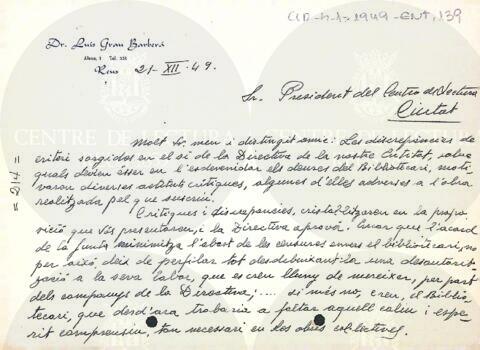 CID-4-1-1949-ENT, 139
Dr. Luis Grau Barberá
Alena, 1 Tel. 335
Reus 21-XII-49.
Sr. President del Centro de Lectura
Ciutat
CENTRE DE LECTURA
Molt Sr. meu i distingit amic: Les discrepàncies de
criteri sorgides en el si de la Directiva de la nostra Entitat, sobre
quals deuen ésser en l'esdevenidor els deures del Bibliotecari, moti-
varen diverses actituts crítiques, algunes d'elles adverses a l'obra
realitzada pel que suscriu.
Crítiques i discrepancies, cristalitzaren en la propo-
sició que Vós presentareu, i la Directiva aprovà. Encar que l'acord
de la Junta minimitza l'abast de les censures envers el bibliotecari, no
per això, deix de perfilar tot desdibuixant-la una desautorit-
zació a la seva labor, que es creu lluny de mereixer, per part
dels companys de la Directiva; .... si més no, creu, el Biblio-
tecari, que desd'ara trobaria a faltar aquell calm i espe-
rit comprensiu, tan necessari en les obres col·lectives.
= 214 =